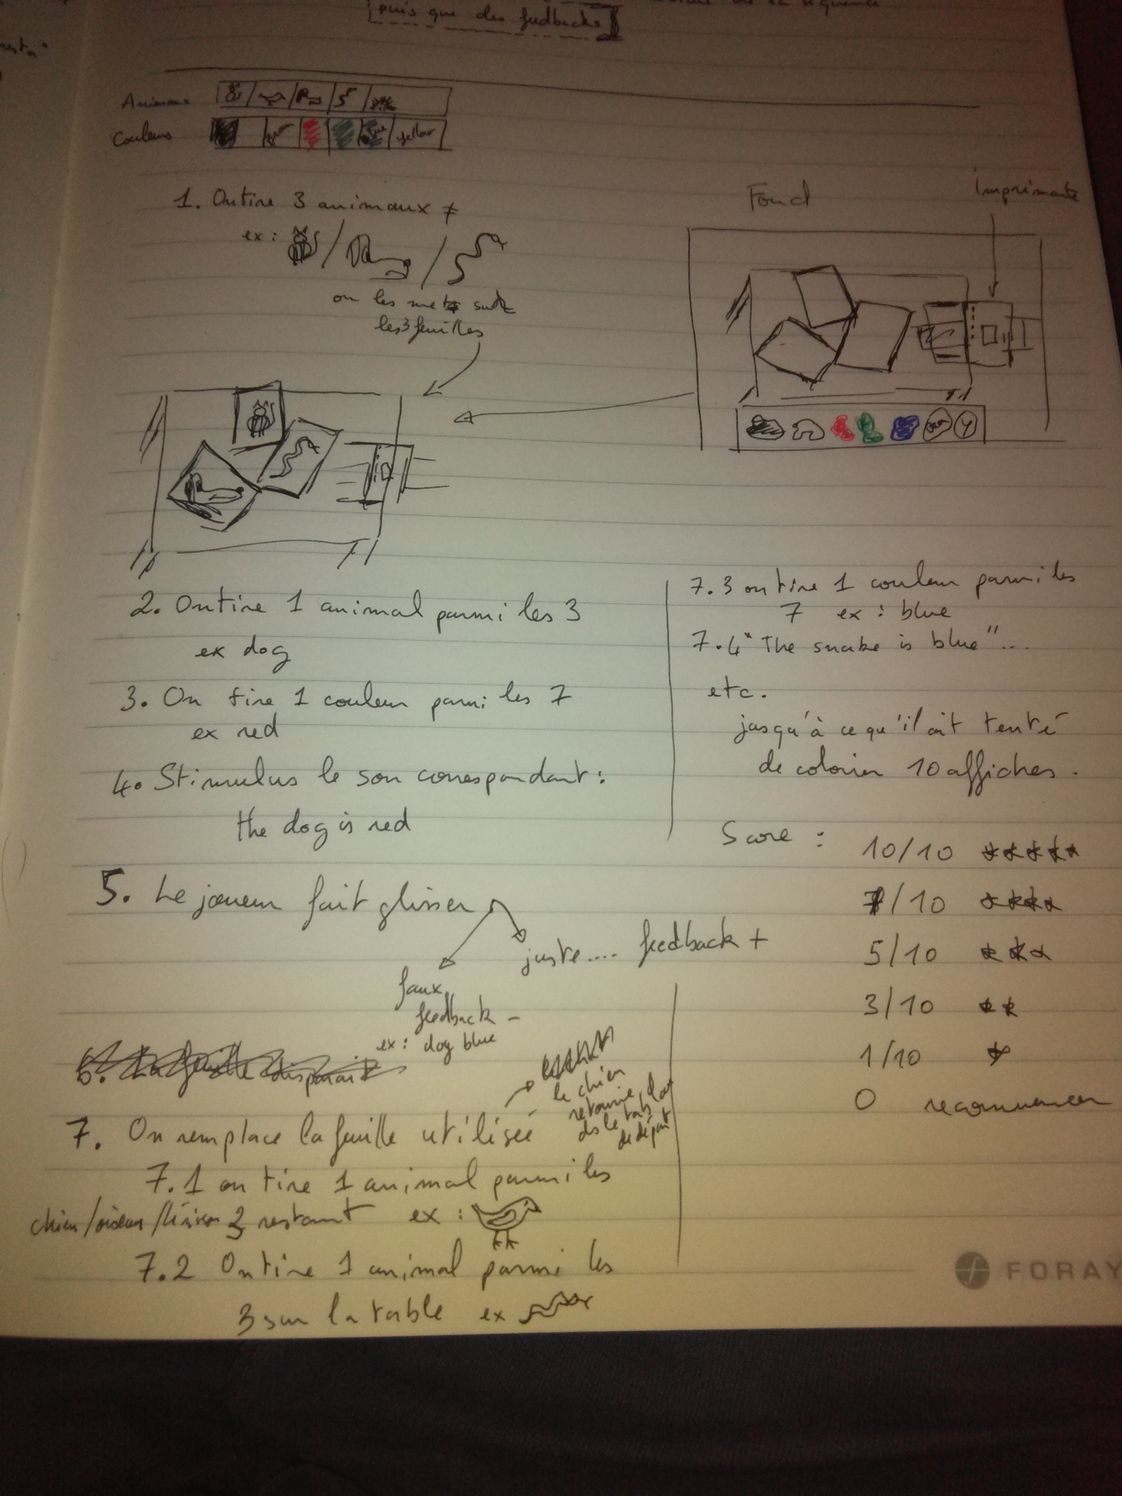 puis que des feedbacks
Animaux
Couleurs
yellow
1. On tire 3 animaux ≠
ex :
on les met sur
les 3 feuilles
Fond
imprimante
2. On tire 1 animal parmi les 3
ex dog
3. On tire 1 couleur parmi les 7
ex red
4. Stimulus le son correspondant :
the dog is red
5. Le joueur fait glisser
juste.... feedback +
faux
feedback -
ex : dog blue
7. On remplace la feuille utilisée
le chien
retourne
ds le tableau
de départ
7.1 on tire 1 animal parmi les
chien/oiseau/ 3 restant ex :
7.2 On tire 1 animal parmi les
3 sur la table ex
7.3 on tire 1 couleur parmi les
7 ex : blue
7.4 "The snake is blue"...
etc.
jusqu'à ce qu'il ait tenté
de colorier 10 affiches.
Score :
10/10 *****
7/10 ****
5/10 ***
3/10 **
1/10 *
0 recommencer
FORAY